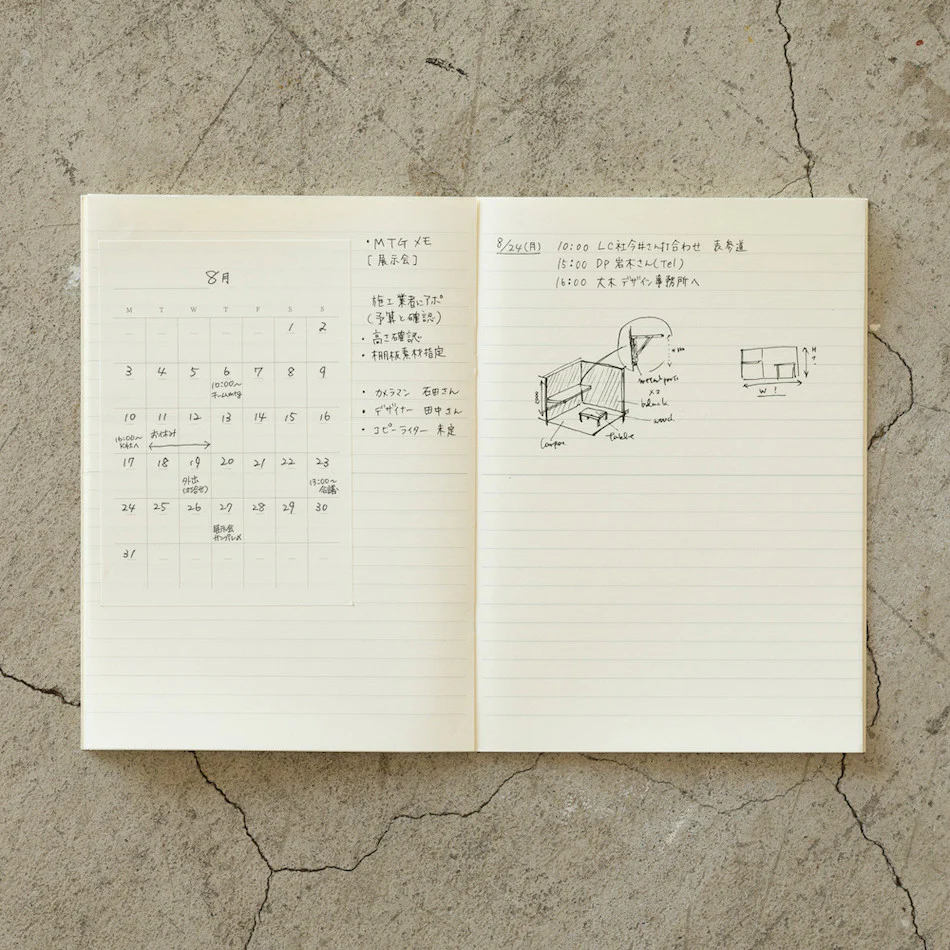 8月
M T W T F S S
1 2
3 4 5 6 7 8 9
10:00〜
チームmtg
10 11 12 13 14 15 16
16:00〜
お休み
17 18 19 20 21 22 23
外出
13:00〜
会議
24 25 26 27 28 29 30
展示会
31
・MTG メモ
[展示会]
施工業者にアポ
(予算と確認)
・高さ確認
・棚板素材指定
・カメラマン 石田さん
・デザイナー 田中さん
・コピーライター 未定
8/24(月) 10:00 LC社今井さん打合わせ 表参道
15:00 DP 岩木さん(Tel)
16:00 大木デザイン事務所へ
black
wood
table
H?
W!